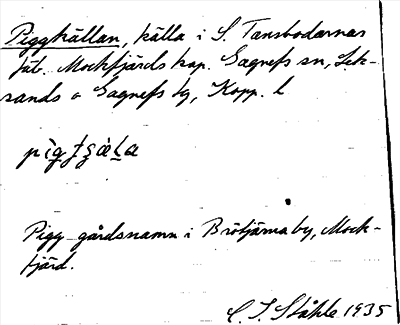 Piggkällan, källa i S. Tansbodarnas
fäb. Mockfjärds kap. Gagnefs sn, Lek-
sands o Gagnefs tg, Kopp. l
Pigg- gårdsnamn i Brötjärna by, Mock-
fjärd.
C. I. Ståhle 1935